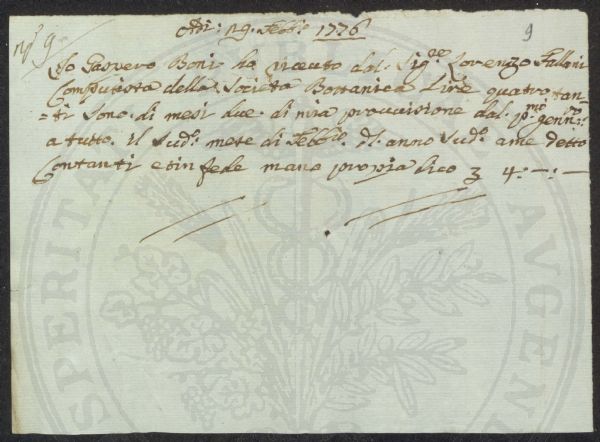 Adi: 29. Febb.º 1776
9
nº 9
Io Gaspero Boni ho riceuto dal. Sig.re Lorenzo Fallani
Computista della Società Bottanica Lire quatro tan=
=ti sono di mesi due di mia provvisione dal. p.mo genn.º
a tutto il Sud.º mese di Febb.º d. anno Sud.º a me detto
Contanti e in fede mano propria dico 4:—:—
PERITA
AVGEND